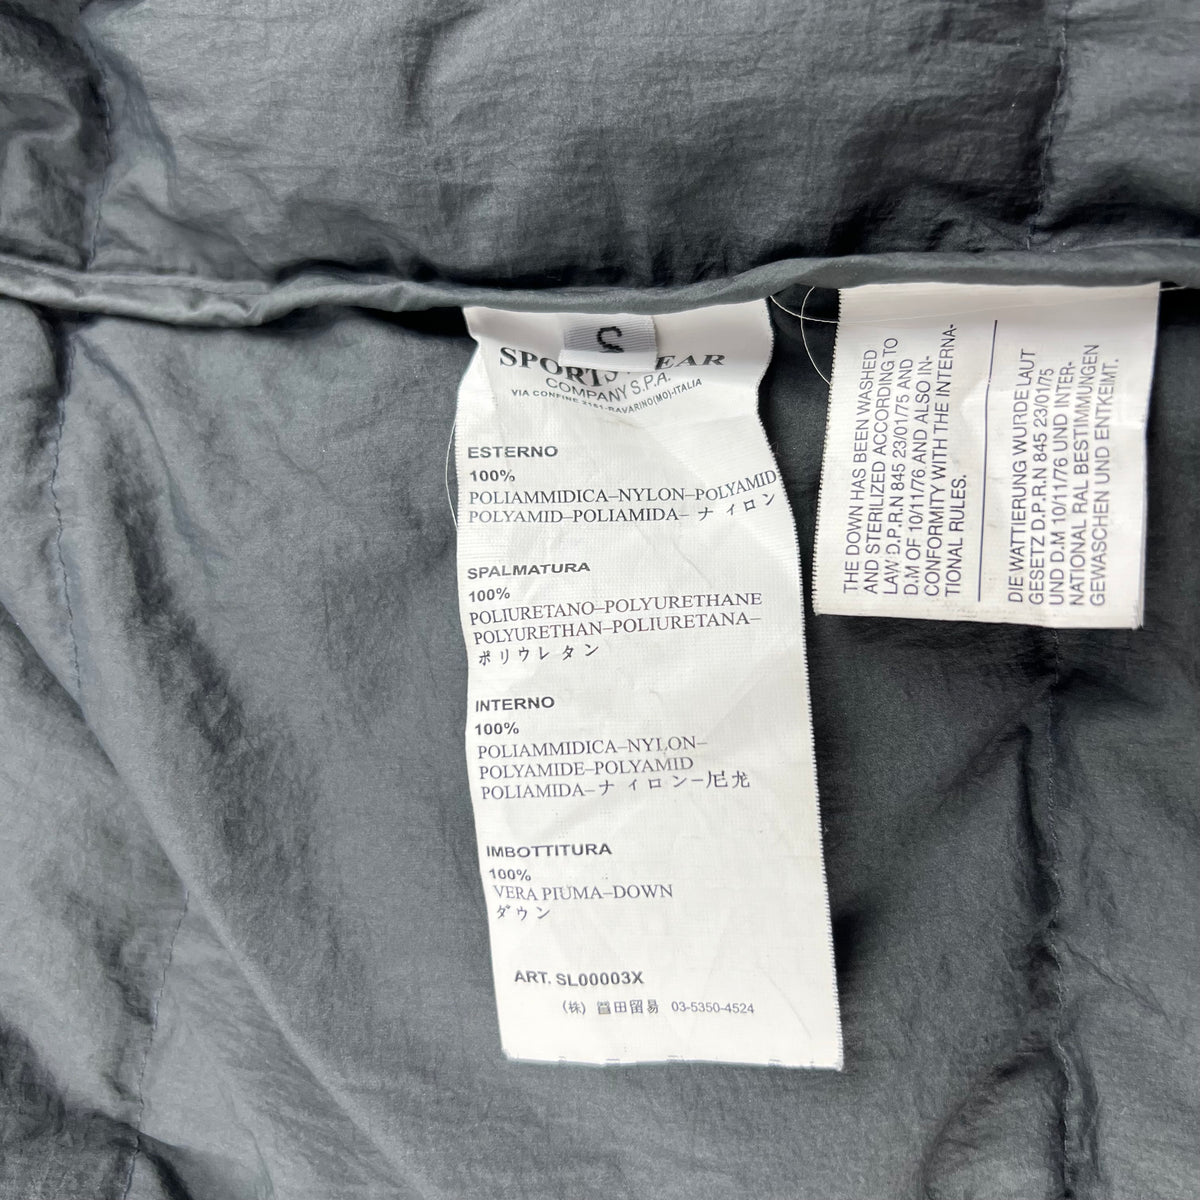 S
COMPANY S.P.A.
VIA CONFINE 2161-RAVARINO(MO)-ITALIA
ESTERNO
100%
POLIAMMIDICA–NYLON–POLYAMID
POLYAMID–POLIAMIDA– ナイロン
SPALMATURA
100%
POLIURETANO–POLYURETHANE
POLYURETHAN–POLIURETANA–
ポリウレタン
INTERNO
100%
POLIAMMIDICA–NYLON–
POLYAMIDE–POLYAMID
POLIAMIDA–ナイロン–尼龙
IMBOTTITURA
100%
VERA PIUMA–DOWN
ダウン
ART. SL00003X
(株) 田留易 03-5350-4524
THE DOWN HAS BEEN WASHED
AND STERILIZED ACCORDING TO
LAW D.P.R.N 845 23/01/75 AND
D.M OF 10/11/76 AND ALSO IN-
CONFORMITY WITH THE INTERNA-
TIONAL RULES.
DIE WATTIERUNG WURDE LAUT
GESETZ D.P.R.N 845 23/01/75
UND D.M 10/11/76 UND INTER-
NATIONAL RAL BESTIMMUNGEN
GEWASCHEN UND ENTKEIMT.